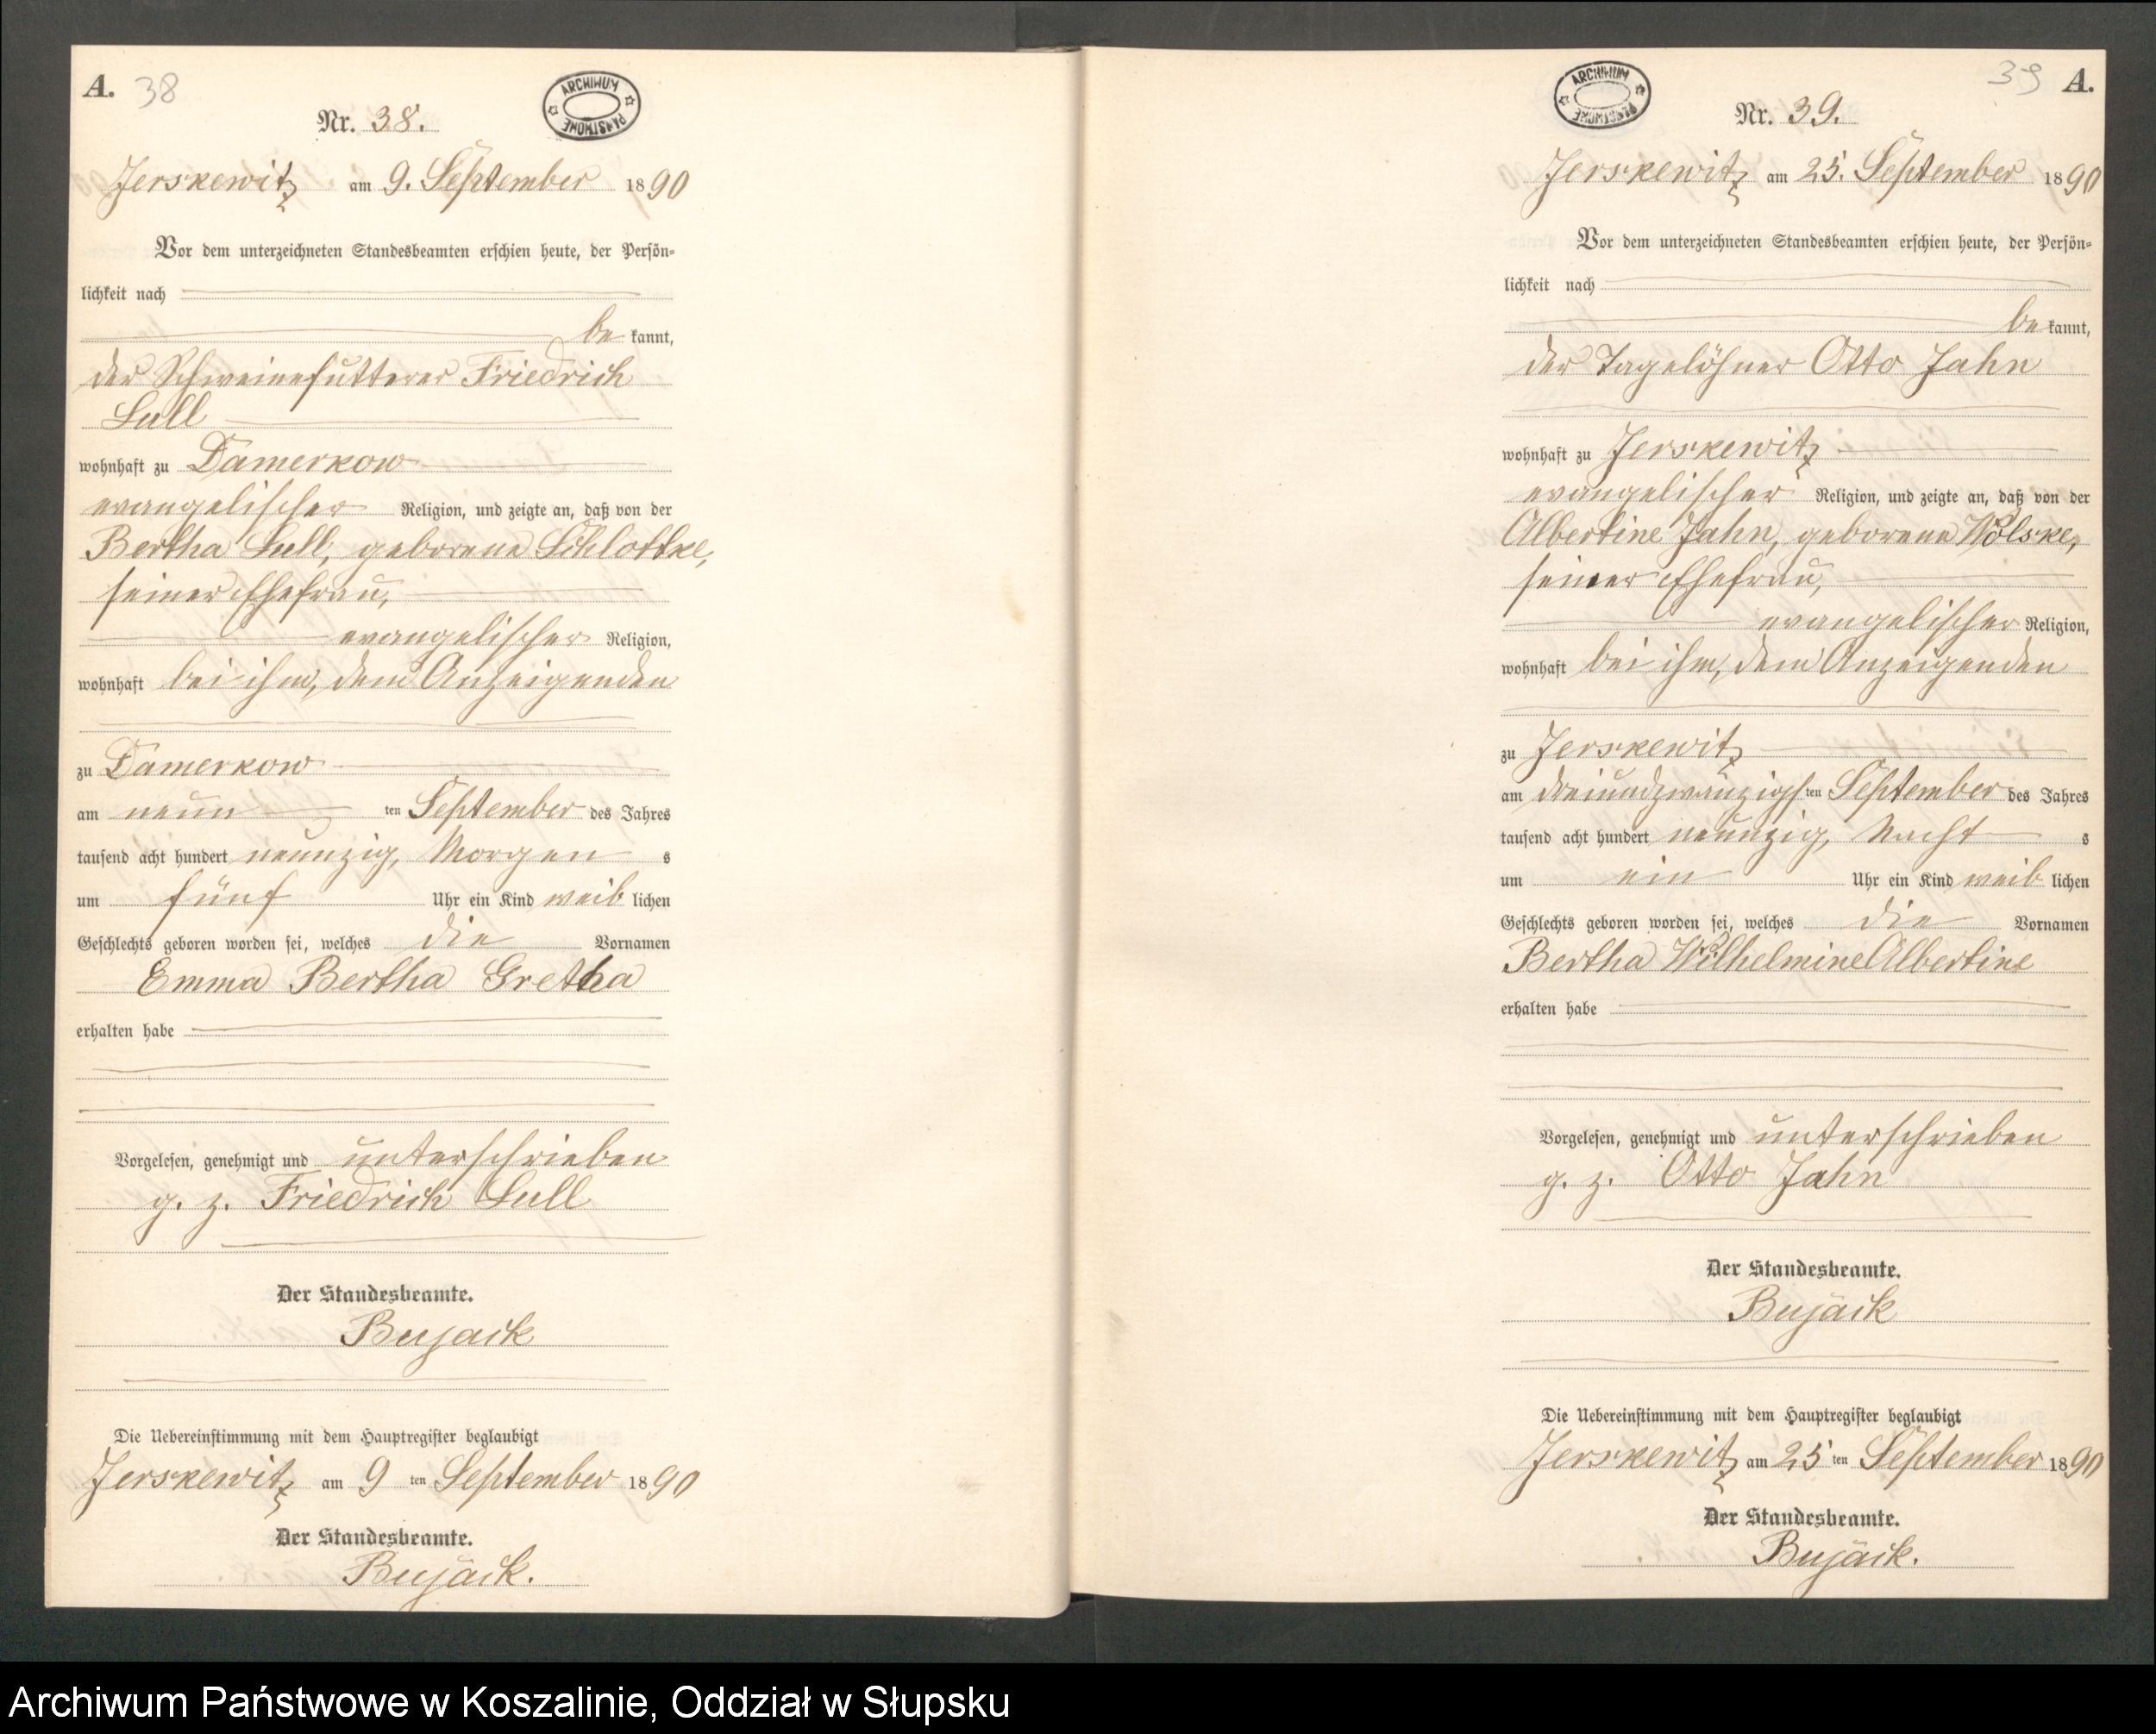 A. 38
ARCHIWUM PAŃSTWOWE
Nr. 38.
Jerskewitz am 9. September 1890
Vor dem unterzeichneten Standesbeamten erschien heute, der Persön-
lichkeit nach
be kannt,
der Schweinefutterer Friedrich
Lull
wohnhaft zu Damerkow
evangelischer Religion, und zeigte an, daß von der
Bertha Lull, geborene Schlottke,
seiner Ehefrau,
evangelischer Religion,
wohnhaft bei ihm, dem Anzeigenden
zu Damerkow
am neun ten September des Jahres
tausend acht hundert neunzig, Morgen s
um fünf Uhr ein Kind weib lichen
Geschlechts geboren worden sei, welches die Vornamen
Emma Bertha Gretha
erhalten habe
Vorgelesen, genehmigt und unterschrieben
g. z. Friedrich Lull
Der Standesbeamte.
Bujack
Die Uebereinstimmung mit dem Hauptregister beglaubigt
Jerskewitz am 9 ten September 1890
Der Standesbeamte.
Bujack.
39 A.
ARCHIWUM PAŃSTWOWE
Nr. 39.
Jerskewitz am 25. September 1890
Vor dem unterzeichneten Standesbeamten erschien heute, der Persön-
lichkeit nach
be kannt,
der Tagelöhner Otto Jahn
wohnhaft zu Jerskewitz
evangelischer Religion, und zeigte an, daß von der
Albertine Jahn, geborene Wolske,
seiner Ehefrau,
evangelischer Religion,
wohnhaft bei ihm, dem Anzeigenden
zu Jerskewitz
am dreiundzwanzigsten September des Jahres
tausend acht hundert neunzig, Nacht s
um ein Uhr ein Kind weib lichen
Geschlechts geboren worden sei, welches die Vornamen
Bertha Wilhelmine Albertine
erhalten habe
Vorgelesen, genehmigt und unterschrieben
g. z. Otto Jahn
Der Standesbeamte.
Bujack
Die Uebereinstimmung mit dem Hauptregister beglaubigt
Jerskewitz am 25 ten September 1890
Der Standesbeamte.
Bujack.
Archiwum Państwowe w Koszalinie, Oddział w Słupsku